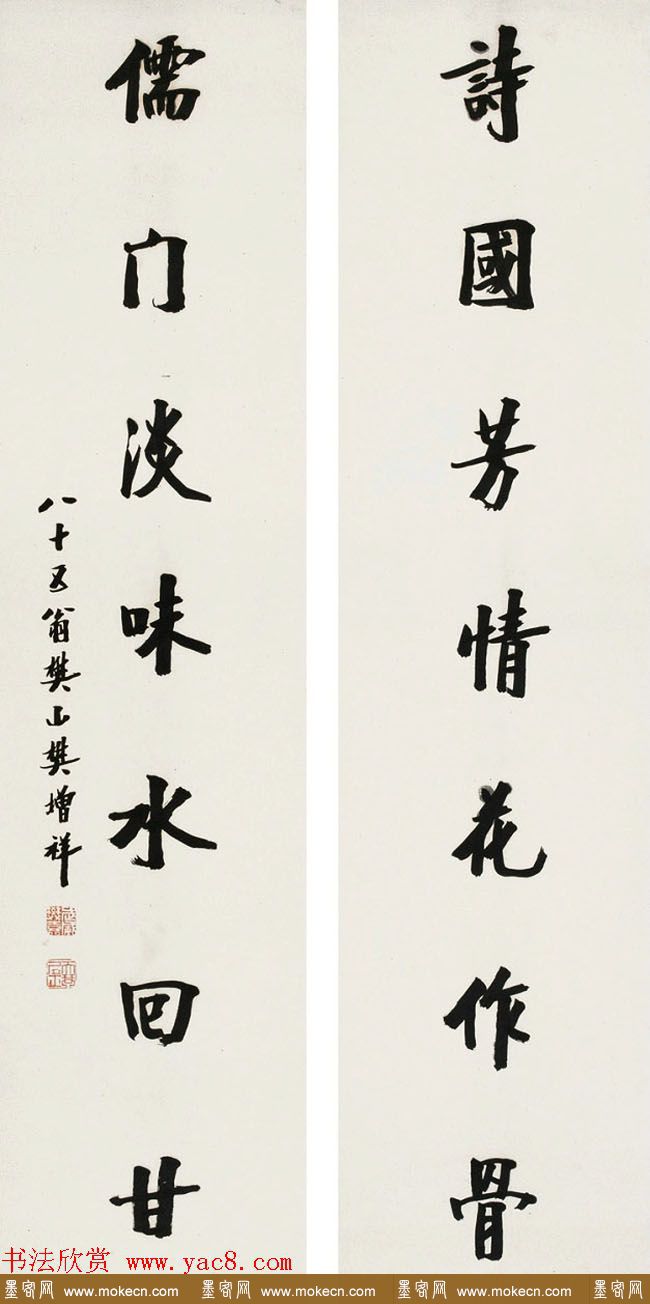 詩國芳情花作骨
儒门淡味水回甘
八十五翁樊山樊增祥
书法欣赏 www.yac8.com
墨客网 www.mokecn.com 墨客网 www.mokecn.com 墨客网 www.mokecn.com 墨客网 www.mokecn.com